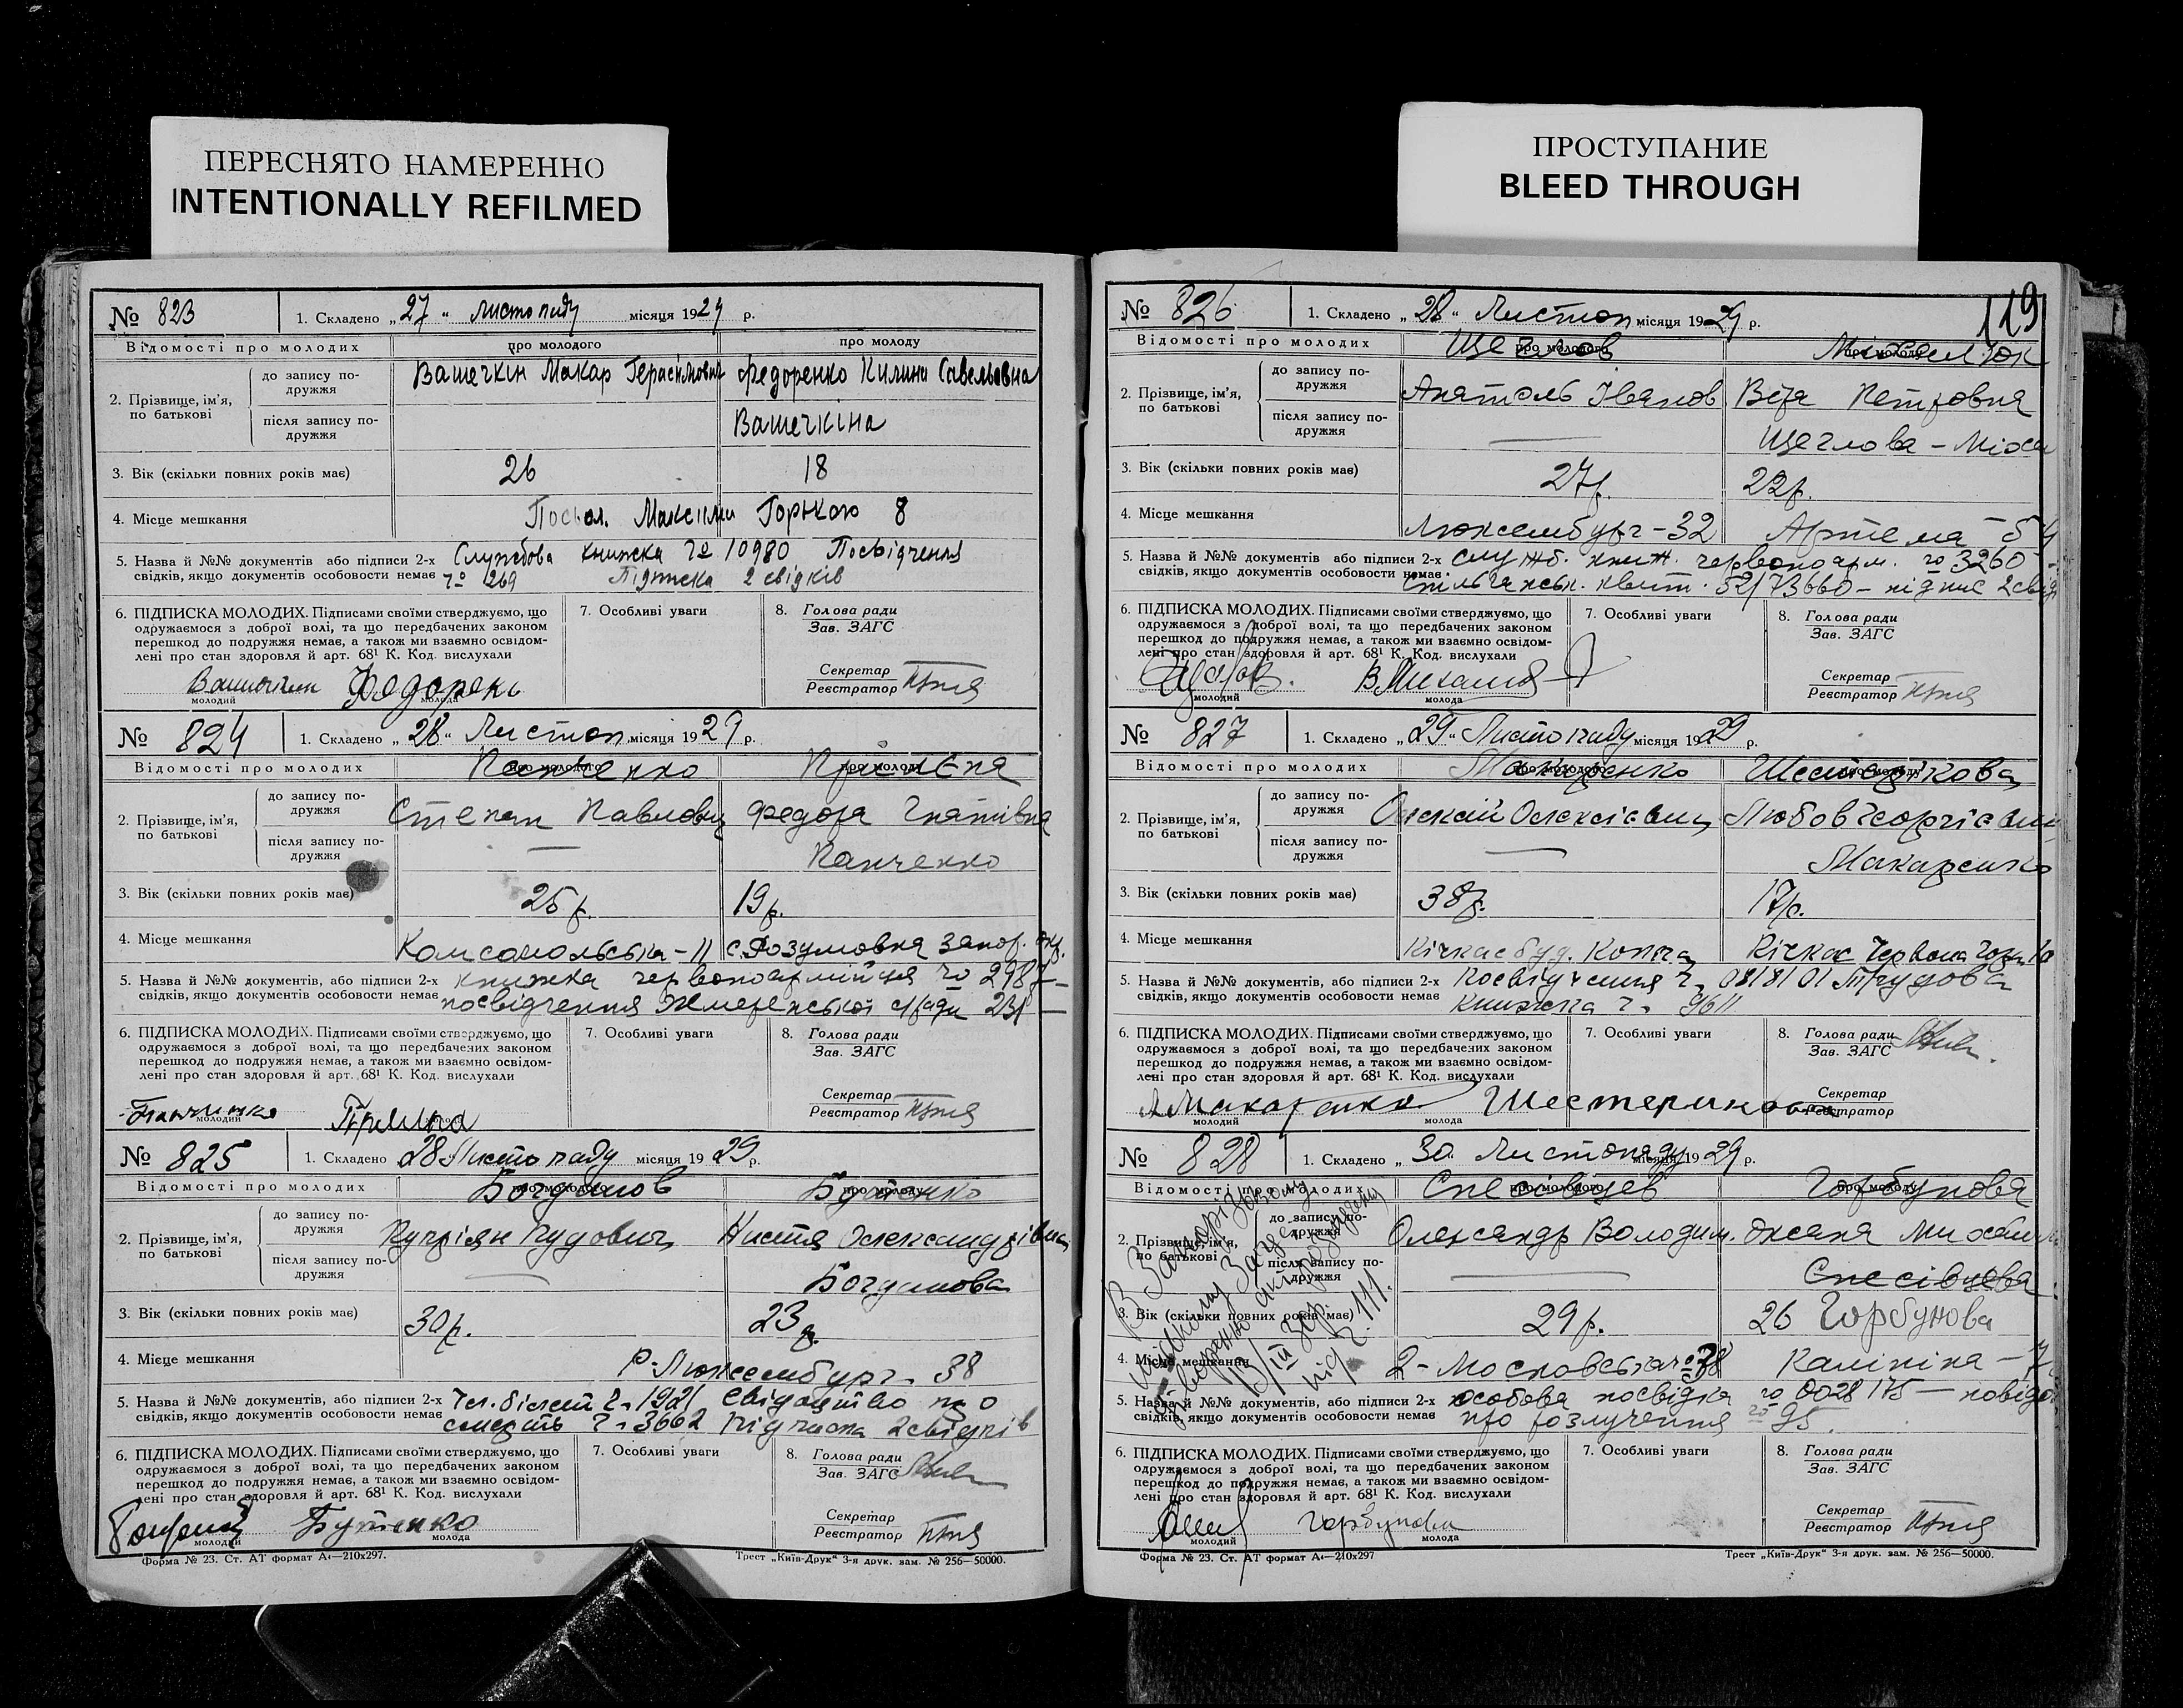 ПЕРЕСНЯТО НАМЕРЕННО
INTENTIONALLY REFILMED
ПРОСТУПАНИЕ
BLEED THROUGH
№ 823 1. Складено „27“ листопаду місяця 1929 р.
Відомості про молодих про молодого про молоду
2. Прізвище, ім'я, по батькові
до запису подружжя Вашечкін Макар Герасімович Федоренко Килина Савельовна
після запису подружжя Вашечкіна
3. Вік (скільки повних років має) 26 18
4. Місце мешкання Посьол. Максима Горького 8
5. Назва й №№ документів або підписи 2-х Службова книжка № 10980 Посвідчення
свідків, якщо документів особовости немає № 269 Підписка 2 свідків
6. ПІДПИСКА МОЛОДИХ. Підписами своїми стверджуємо, що
одружаємося з доброї волі, та що передбачених законом
перешкод до подружжя немає, а також ми взаємно освідом-
лені про стан здоровля й арт. 68¹ К. Код. вислухали
7. Особливі уваги
8. Голова ради
Зав. ЗАГС
Секретар
Реєстратор
молодий молода
№ 824 1. Складено „28“ Листоп. місяця 1929 р.
Відомості про молодих про молодого про молоду
Панченко
2. Прізвище, ім'я, по батькові
до запису подружжя Степан Павлович Федора Гнатівна
після запису подружжя — Панченко
3. Вік (скільки повних років має) 19 р.
4. Місце мешкання Комсомольська-11 с. Розумовка Запор. окр.
5. Назва й №№ документів, або підписи 2-х книжка червоноармійця
свідків, якщо документів особовости немає посвідчення
6. ПІДПИСКА МОЛОДИХ. Підписами своїми стверджуємо, що
одружаємося з доброї волі, та що передбачених законом
перешкод до подружжя немає, а також ми взаємно освідом-
лені про стан здоровля й арт. 68¹ К. Код. вислухали
7. Особливі уваги
8. Голова ради
Зав. ЗАГС
Секретар
Реєстратор
молодий
№ 825 1. Складено 28 Листопаду місяця 1929 р.
Відомості про молодих про молодого про молоду
Богданов Бутенко
2. Прізвище, ім'я, по батькові
до запису подружжя Купріян Настя Олександрівна
після запису подружжя — Богданова
3. Вік (скільки повних років має) 30 р. 23 р.
4. Місце мешкання Р-Люксембург. 38
5. Назва й №№ документів, або підписи 2-х Чл. білет ч. 1921 свідоцтво про
свідків, якщо документів особовости немає смерть ч. 3662 підписка 2 свідків
6. ПІДПИСКА МОЛОДИХ. Підписами своїми стверджуємо, що
одружаємося з доброї волі, та що передбачених законом
перешкод до подружжя немає, а також ми взаємно освідом-
лені про стан здоровля й арт. 68¹ К. Код. вислухали
7. Особливі уваги
8. Голова ради
Зав. ЗАГС
Секретар
Реєстратор
Бутенко
молодий молода
Форма № 23. Ст. АТ формат А₄—210х297. Трест „Київ-Друк“ 3-я друк. зам. № 256—50000.
119
№ 826 1. Складено „28“ Листоп місяця 1929 р.
Відомості про молодих про молодого про молоду
Щеглов
2. Прізвище, ім'я, по батькові
до запису подружжя Анатоль Іванов Віра Петровна
після запису подружжя — Щеглова -
3. Вік (скільки повних років має) 27 р. 22 р.
4. Місце мешкання Люксембург-32 Артема -
5. Назва й №№ документів або підписи 2-х служб. книж. червоноарм. № 3260
свідків, якщо документів особовости немає. квит. 52/73660 - підпис 2 свід
6. ПІДПИСКА МОЛОДИХ. Підписами своїми стверджуємо, що
одружаємося з доброї волі, та що передбачених законом
перешкод до подружжя немає, а також ми взаємно освідом-
лені про стан здоровля й арт. 68¹ К. Код. вислухали
7. Особливі уваги
8. Голова ради
Зав. ЗАГС
Секретар
Реєстратор
молодий молода
№ 827 1. Складено „29“ Листопаду місяця 1929 р.
Відомості про молодих про молодого про молоду
Макаренко
2. Прізвище, ім'я, по батькові
до запису подружжя Олексій Олексієвич Любов Георгієвна
після запису подружжя — Макаренко
3. Вік (скільки повних років має) 38 р. 17 р.
4. Місце мешкання Кічкас буд. Кічкас Червона
5. Назва й №№ документів, або підписи 2-х посвідчення Трудова
свідків, якщо документів особовости немає книжка ч. 9611
6. ПІДПИСКА МОЛОДИХ. Підписами своїми стверджуємо, що
одружаємося з доброї волі, та що передбачених законом
перешкод до подружжя немає, а також ми взаємно освідом-
лені про стан здоровля й арт. 68¹ К. Код. вислухали
7. Особливі уваги
8. Голова ради
Зав. ЗАГС
Секретар
Реєстратор
Макаренко Шестерикова
молодий молода
№ 828 1. Складено „30 Листопаду місяця 1929 р.
Відомості про молодих про молодого про молоду
Спесівцев Горбунова
2. Прізвище, ім'я, по батькові
до запису подружжя Олександр Володим. Оксана Михайл
після запису подружжя — Спесівцева
3. Вік (скільки повних років має) 29 р. 26 Горбунова
4. Місце мешкання 2-Московська Калініна - 7
5. Назва й №№ документів, або підписи 2-х особова посвідка № 0028175 —
свідків, якщо документів особовости немає про розлучення № 95.
6. ПІДПИСКА МОЛОДИХ. Підписами своїми стверджуємо, що
одружаємося з доброї волі, та що передбачених законом
перешкод до подружжя немає, а також ми взаємно освідом-
лені про стан здоровля й арт. 68¹ К. Код. вислухали
7. Особливі уваги
8. Голова ради
Зав. ЗАГС
Секретар
Реєстратор
Горбунова
молодий молода
Форма № 23. Ст. АТ формат А₄—210х297 Трест „Київ-Друк“ 3-я друк. зам. № 256—50000.